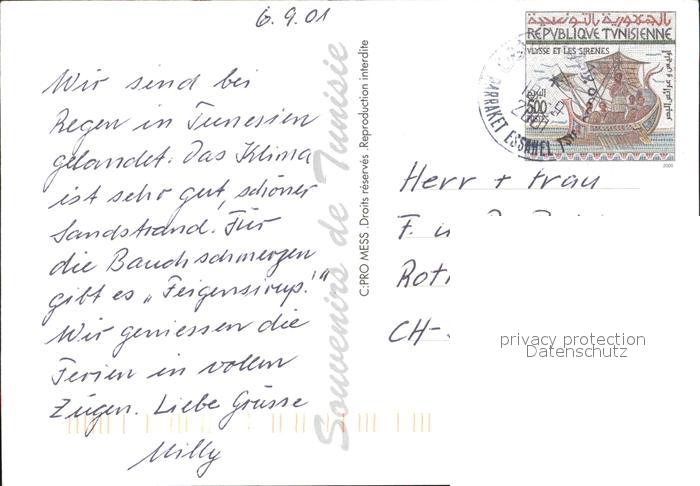 6.9.01
Wir sind bei
Regen in Tunesien
gelandet. Das Klima
ist sehr gut, schöner
Sandstrand. Für
die Bauchschmerzen
gibt es „Feigensirup!"
Wir geniessen die
Ferien in vollen
Zügen. Liebe Grüsse
Milly
Souvenirs de Tunisie
C:PRO MESS .Droits réservés .Reproduction interdite
الجمهورية التونسية
REPVBLIQVE TVNISIENNE
VLYSSE ET LES SIRENES
أوليس و عرائس البحر
البريد
500
2000
BARRAKET ESSAHEL
Herr + Frau
F.
CH-
privacy protection
Datenschutz